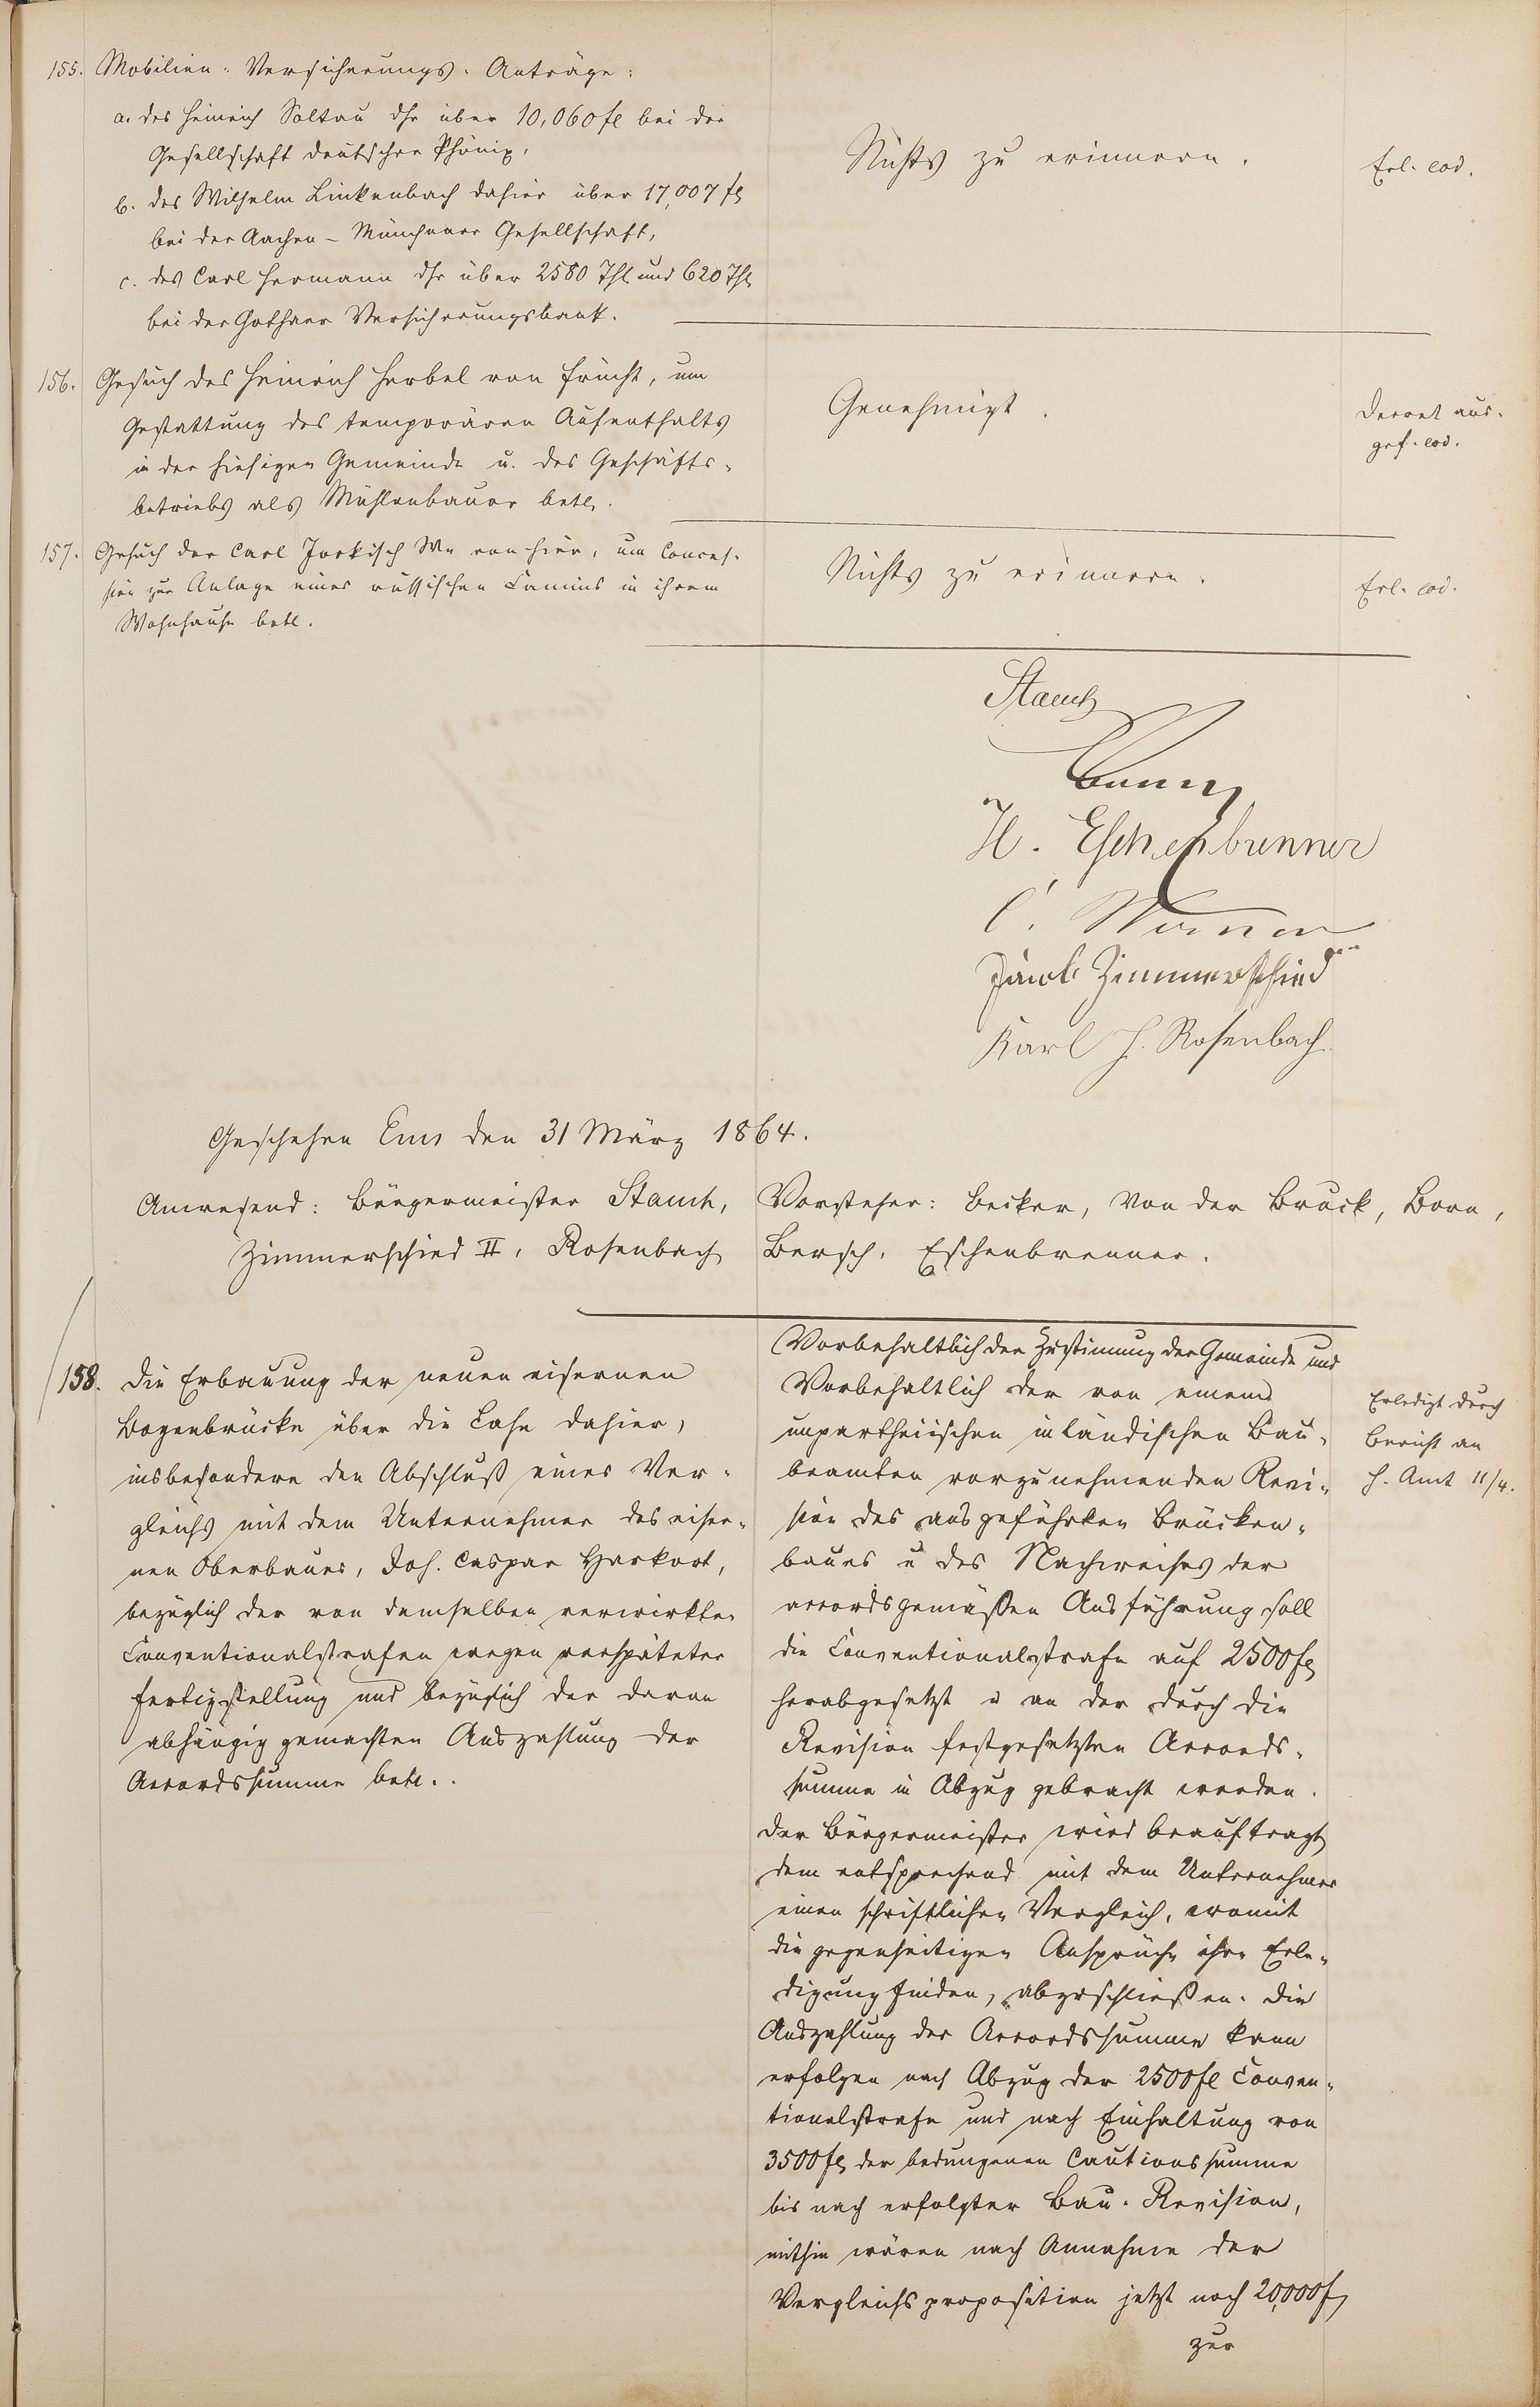 155. Mobilien-Versicherungs-Anträge:
a. des Heinrich Soltau dhr über 10,060 fl bei der
Gesellschaft deutscher Phönix,
b. des Wilhelm Linkenbach dahier über 17,007 fl
bei der Aachen-Münchener Gesellschaft,
c. des Carl Hermann dhr über 2580 Thl und 620 Thl
bei der Gothaer Versicherungsbank.
Nichts zu erinnern.
Erl. eod.
156. Gesuch des Heinrich Herbel von Frücht, um
Gestattung des temporären Aufenthalts
in der hiesigen Gemeinde u. des Geschäfts-
betriebs als Mühlenbauer betr.
Genehmigt.
Decret aus-
gef. eod.
157. Gesuch der Carl Jorkisch We von hier, um Conces-
sion zur Anlage eines russischen Camins in ihrem
Wohnhause betr.
Nichts zu erinnern.
Erl. eod.
Stauch
H. Eschenbrenner
C. Werner
Jacob Zimmerschied
Karl H. Rosenbach
Geschehen Ems den 31 März 1864.
Anwesend: Bürgermeister Stauch, Vorsteher: Becker, Von der Bruck, Born,
Zimmerschied II, Rosenbach Bersch, Eschenbrenner.
158. Die Erbauung der neuen eisernen
Bogenbrücke über die Lahn dahier,
insbesondere den Abschluß eines Ver-
gleichs mit dem Unternehmer des eiser-
nen Oberbaues, Joh. Caspar Harkort,
bezüglich der von demselben verwirkten
Conventionalstrafen wegen verspäteter
Fertigstellung und bezüglich der daran
abhängig gemachten Auszahlung der
Accordssumme betr.
Vorbehaltlich der Zustimung der Gemeinde und
Vorbehaltlich der von einem
unpartheiischen inländischen Bau-
beamten vorzunehmenden Revi-
sion des ausgeführten Brücken-
baues u des Nachweises der
accordsgemäßen Ausführung soll
die Conventionalstrafe auf 2500 fl
herabgesetzt u an der durch die
Revision festgesetzten Accords-
summe in Abzug gebracht werden.
Der Bürgermeister wird beauftragt
dem entsprechend mit dem Unternehmer
einen schriftlichen Vergleich, womit
die gegenseitigen Ansprüche ihre Erle-
digung finden, abzuschließen. Die
Auszahlung der Accordssumme kann
erfolgen nach Abzug der 2500 fl Conven-
tionalstrafe und nach Einhaltung von
3500 fl der bedungenen Cautionssumme
bis nach erfolgter Bau-Revision,
mithin wären nach Annahme der
Vergleichsproposition jetzt noch 20,000 fl
zur
Erledigt durch
Bericht an
H. Amt 11/4.